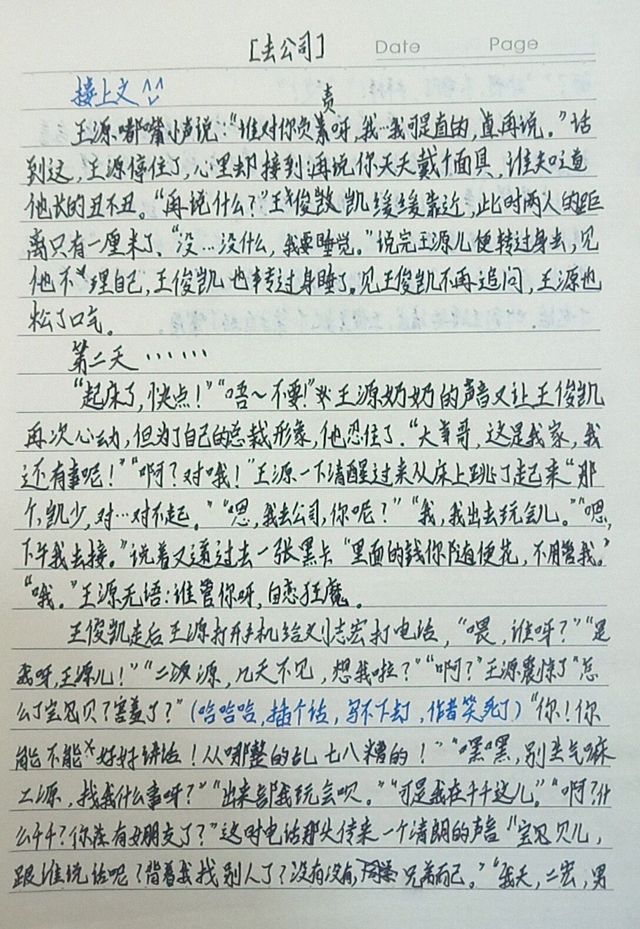 [去公司]
Date Page
接上文^^
责
王源嘟嘴小声说:“谁对你负责呀,我…我可是直的,直再说。”话
到这,王源停住了,心里却接到:再说你天天戴个面具,谁知道
他长的丑不丑。“再说什么?”王俊凯缓缓靠近,此时两人的距
离只有一厘米了、“没…没什么,我要睡觉。”说完王源儿便转过身去,见
他不理自己,王俊凯也转过身睡了。见王俊凯不再追问,王源也
松了口气。
第二天……
“起床了,快点!”“唔~不要!”王源奶奶的声音又让王俊凯
再次心动,但为了自己的总裁形象,他忍住了.“大哥,这是我家,我
还有事呢!”“啊?对哦!”王源一下清醒过来从床上跳了起来“那
个,凯少,对…对不起。”“嗯,我去公司,你呢?”“我,我出去玩会儿。”“嗯,
下午我去接。”说着又递过去一张黑卡“里面的钱你随便花,不用管我。”
“哦。”王源无语:谁管你呀,自恋狂魔。
王俊凯走后王源打开手机给刘志宏打电话,“喂,谁呀?”“是
我呀,王源儿!”“二源源,几天不见,想我啦?”“啊?”王源震惊了“怎
么了宝贝?害羞了?”(哈哈哈,插个话,写不下去了,作者笑死了)“你!你
能不能好好讲话!从哪整的乱七八糟的!”“嘿嘿,别生气嘛
二源,找我什么事呀?”“出来陪我玩会呗。”“可是我在千千这儿。”“啊?什
么千千?你落有女朋友了?”这时电话那头传来一个清朗的声音“宝贝儿,
跟谁说话呢?背着我找别人了?没有没有,同学兄弟而已。”“我天,二宏,男